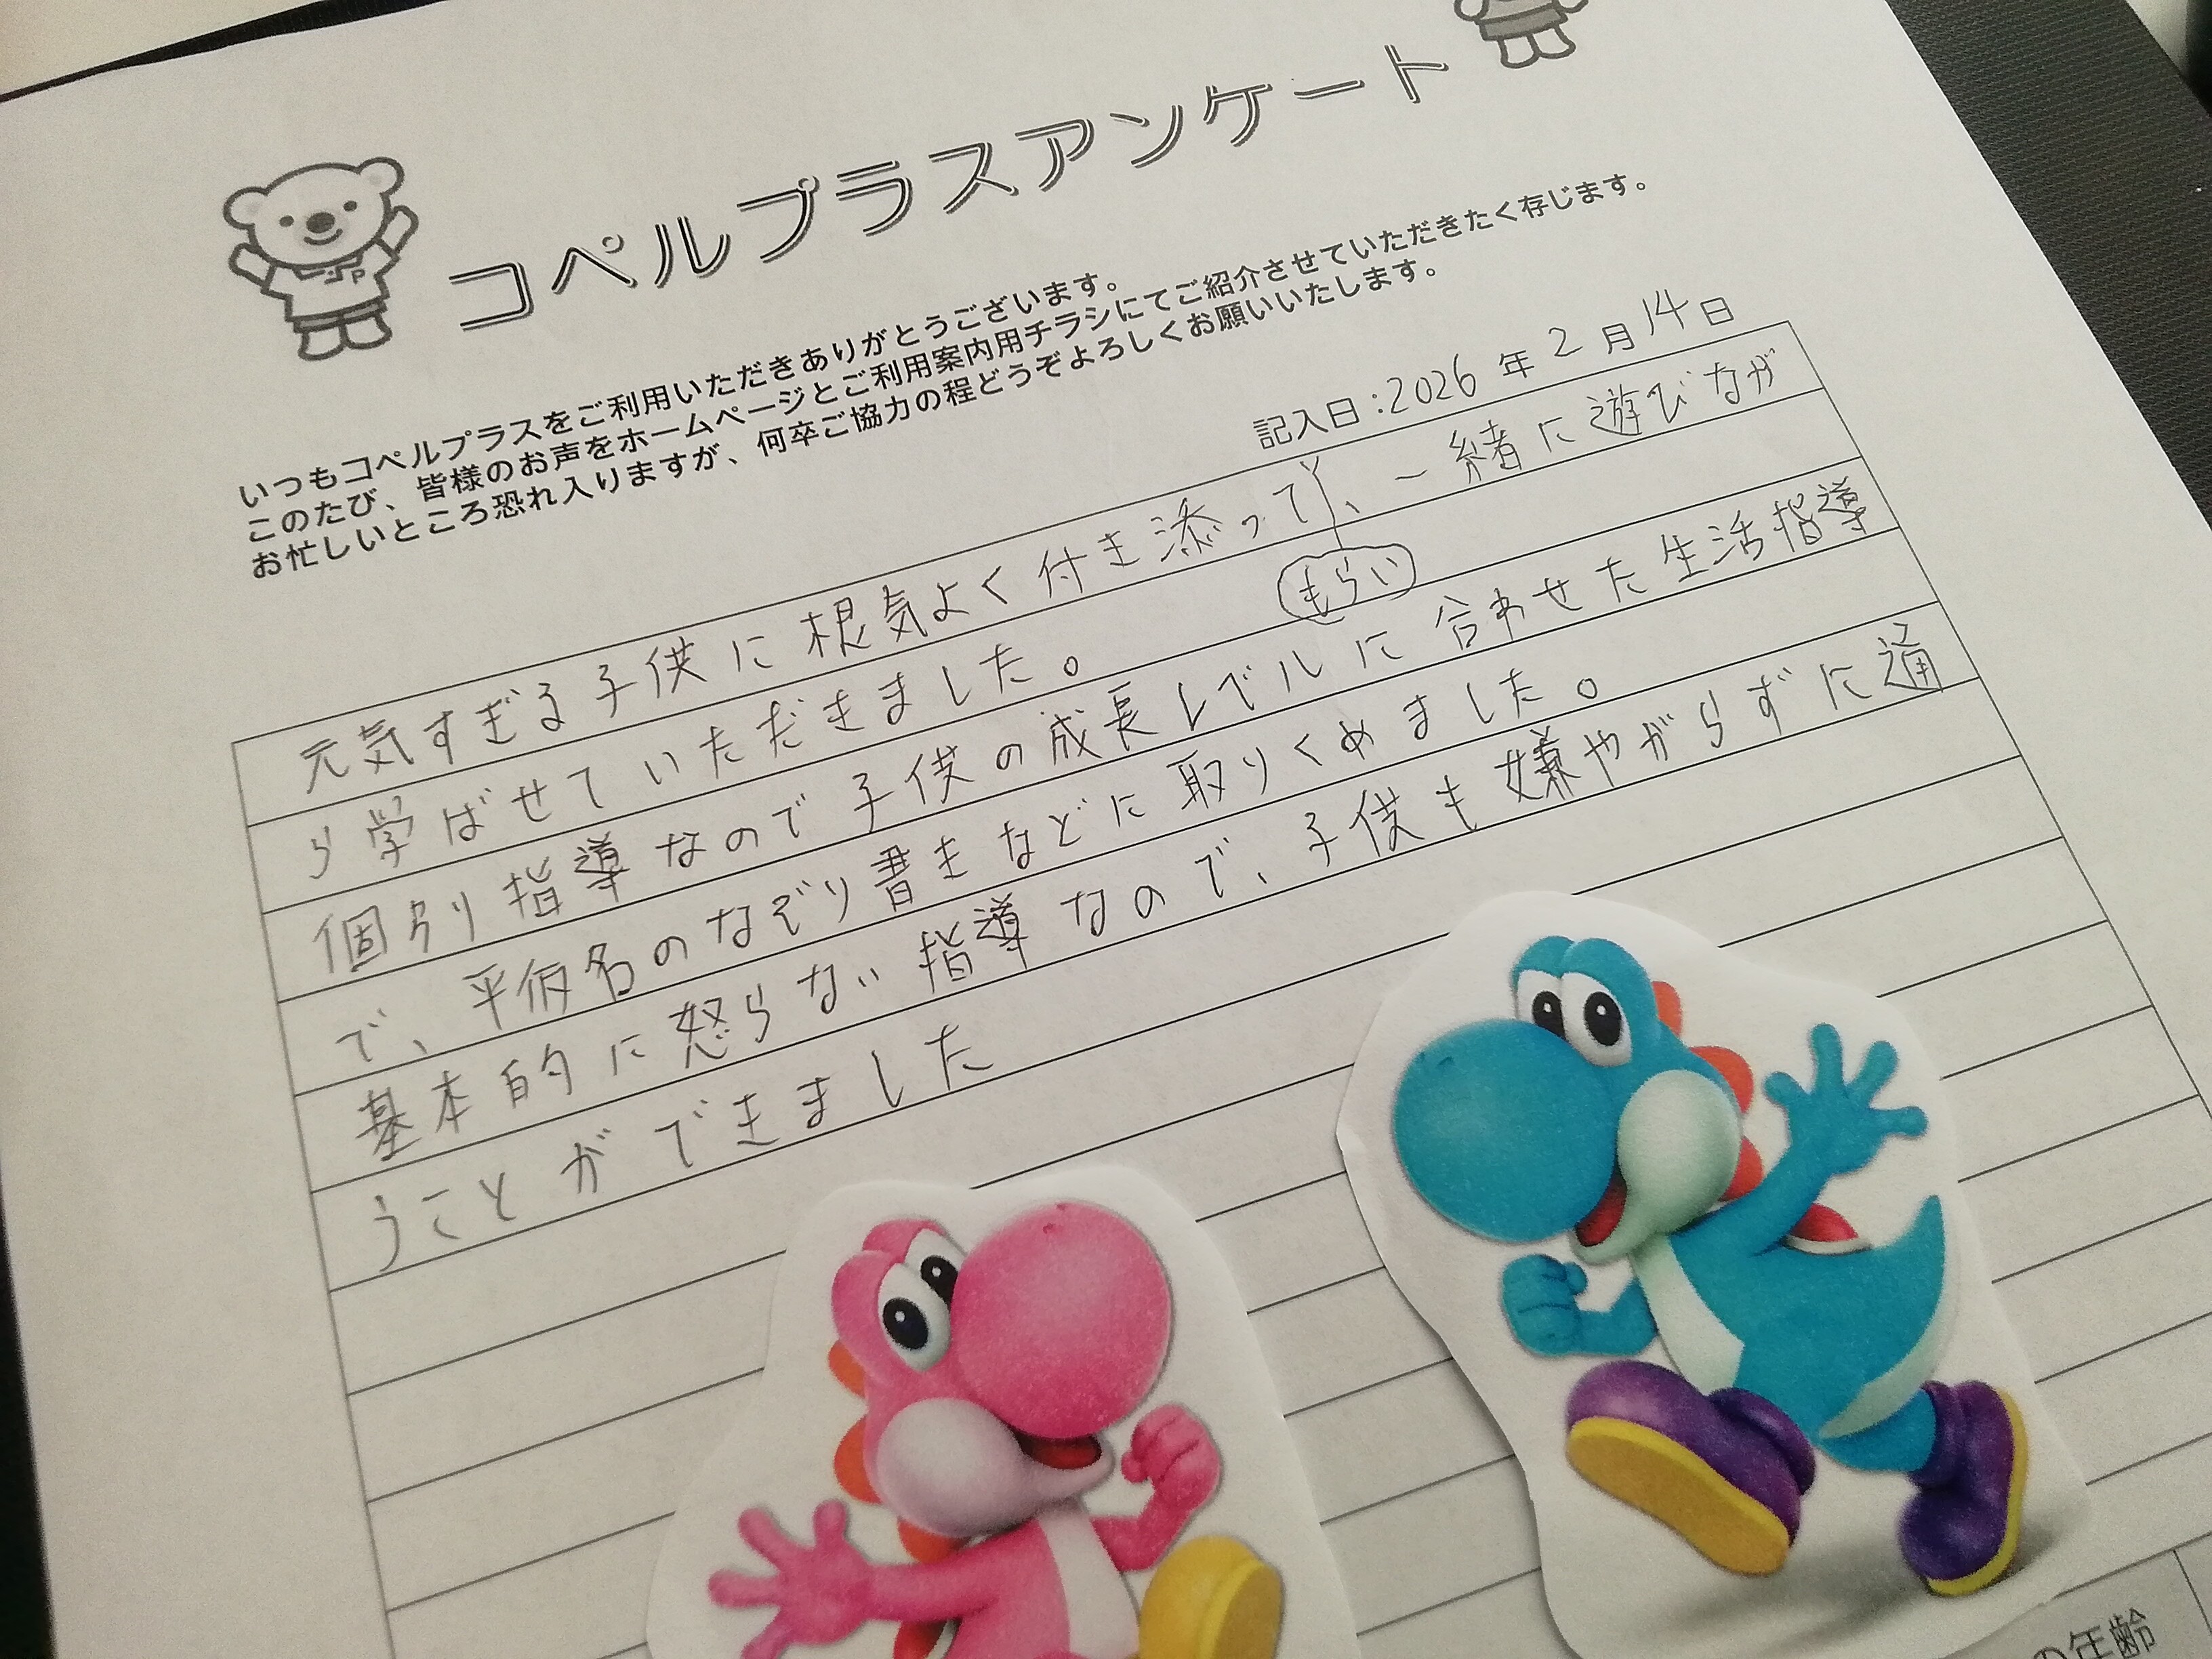 コペルプラスアンケート
いつもコペルプラスをご利用いただきありがとうございます。
このたび、皆様のお声をホームページとご利用案内用チラシにてご紹介させていただきたく存じます。
お忙しいところ恐れ入りますが、何卒ご協力の程どうぞよろしくお願いいたします。
記入日:2026年2月14日
元気すぎる子供に根気よく付き添ってもらい、一緒に遊びなが
ら学ばせていただきました。
個別指導なので子供の成長レベルに合わせた生活指導
で、平仮名のなぞり書きなどに取りくめました。
基本的に怒らない指導なので、子供も嫌やがらずに通
うことができました
の年齢